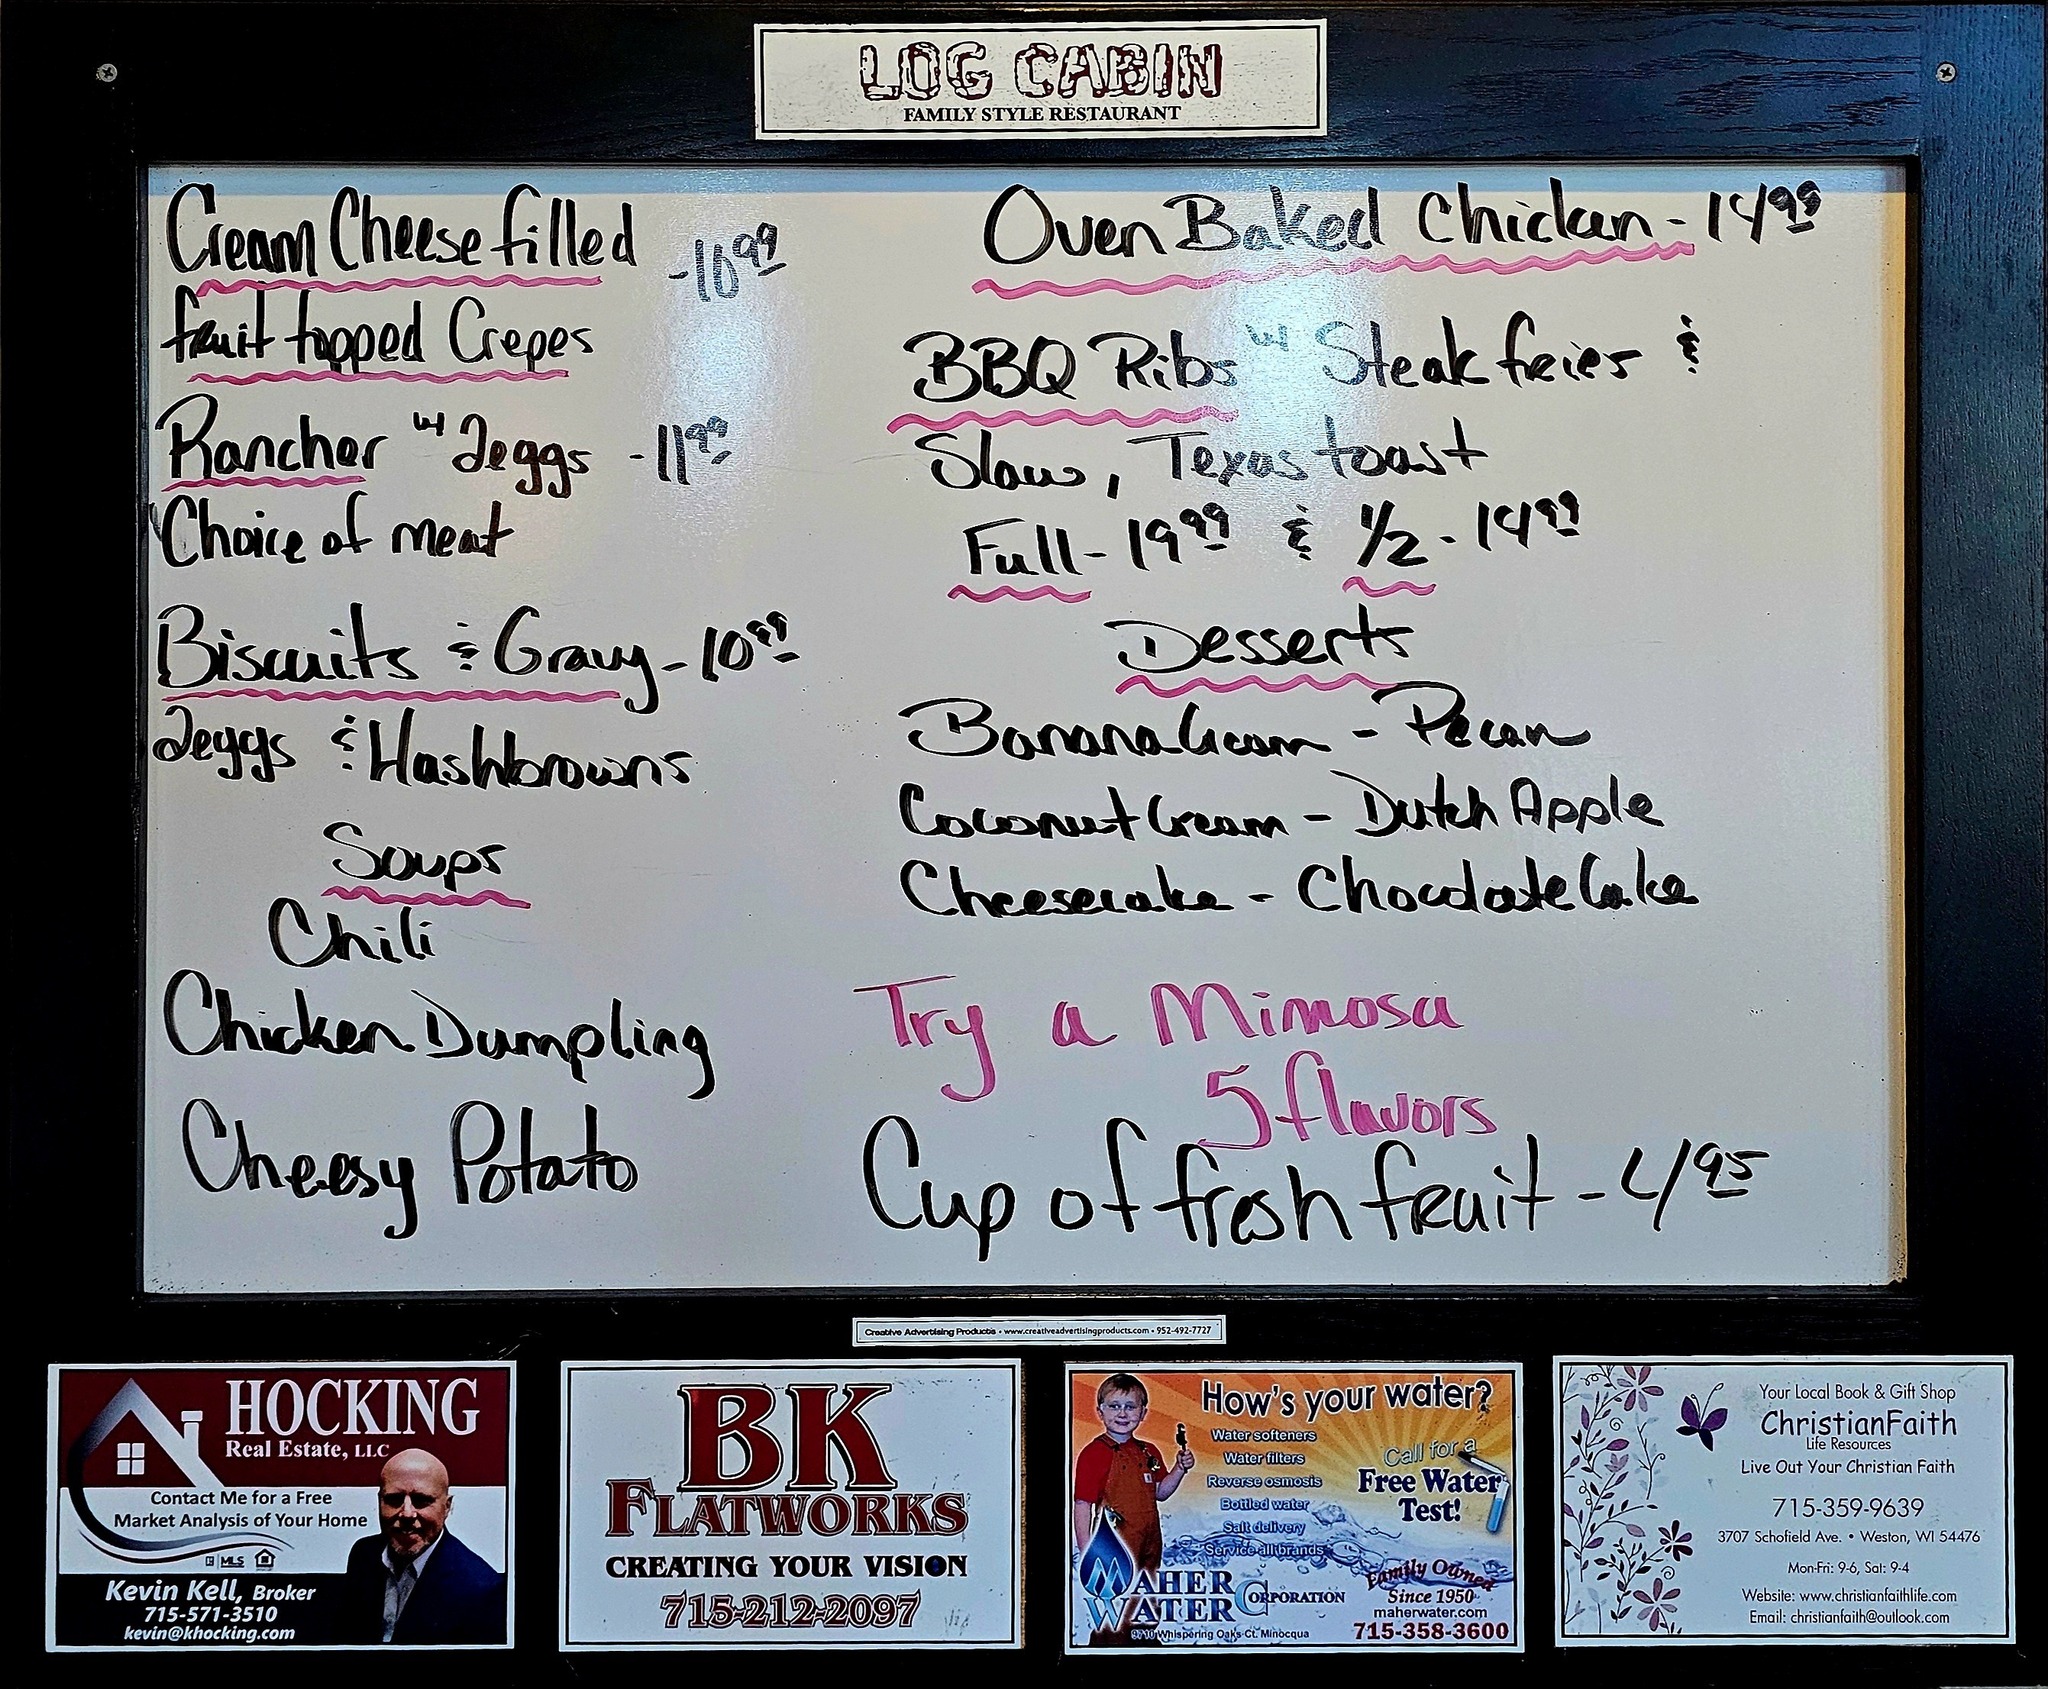 LOG CABIN
FAMILY STYLE RESTAURANT
Cream Cheese filled -10.99
fruit topped Crepes
Rancher w/ 2eggs -11.99
Choice of meat
Biscuits & Gravy - 10.99
2eggs & Hashbrowns
Soups
Chili
Chicken Dumpling
Cheesy Potato
Oven Baked Chicken - 14.99
BBQ Ribs w/ Steak fries &
Slaw, Texas toast
Full - 19.99 & 1/2 - 14.99
Desserts
Banana Cream - Pecan
Coconut Cream - Dutch Apple
Cheesecake - Chocolate Cake
Try a Mimosa
5 flavors
Cup of fresh fruit - 4.95
Creative Advertising Products • www.creativeadvertisingproducts.com • 952-492-7727
HOCKING
Real Estate, LLC
Contact Me for a Free
Market Analysis of Your Home
R MLS
Kevin Kell, Broker
715-571-3510
kevin@khocking.com
BK
FLATWORKS
CREATING YOUR VISION
715-212-2097
How's your water?
Water softeners
Water filters
Reverse osmosis
Bottled water
Salt delivery
Service all brands
Call for a
Free Water
Test!
MAHER
WATER CORPORATION
9710 Whispering Oaks Ct. Minocqua
Family Owned
Since 1950
maherwater.com
715-358-3600
Your Local Book & Gift Shop
ChristianFaith
Life Resources
Live Out Your Christian Faith
715-359-9639
3707 Schofield Ave. • Weston, WI 54476
Mon-Fri: 9-6, Sat: 9-4
Website: www.christianfaithlife.com
Email: christianfaith@outlook.com